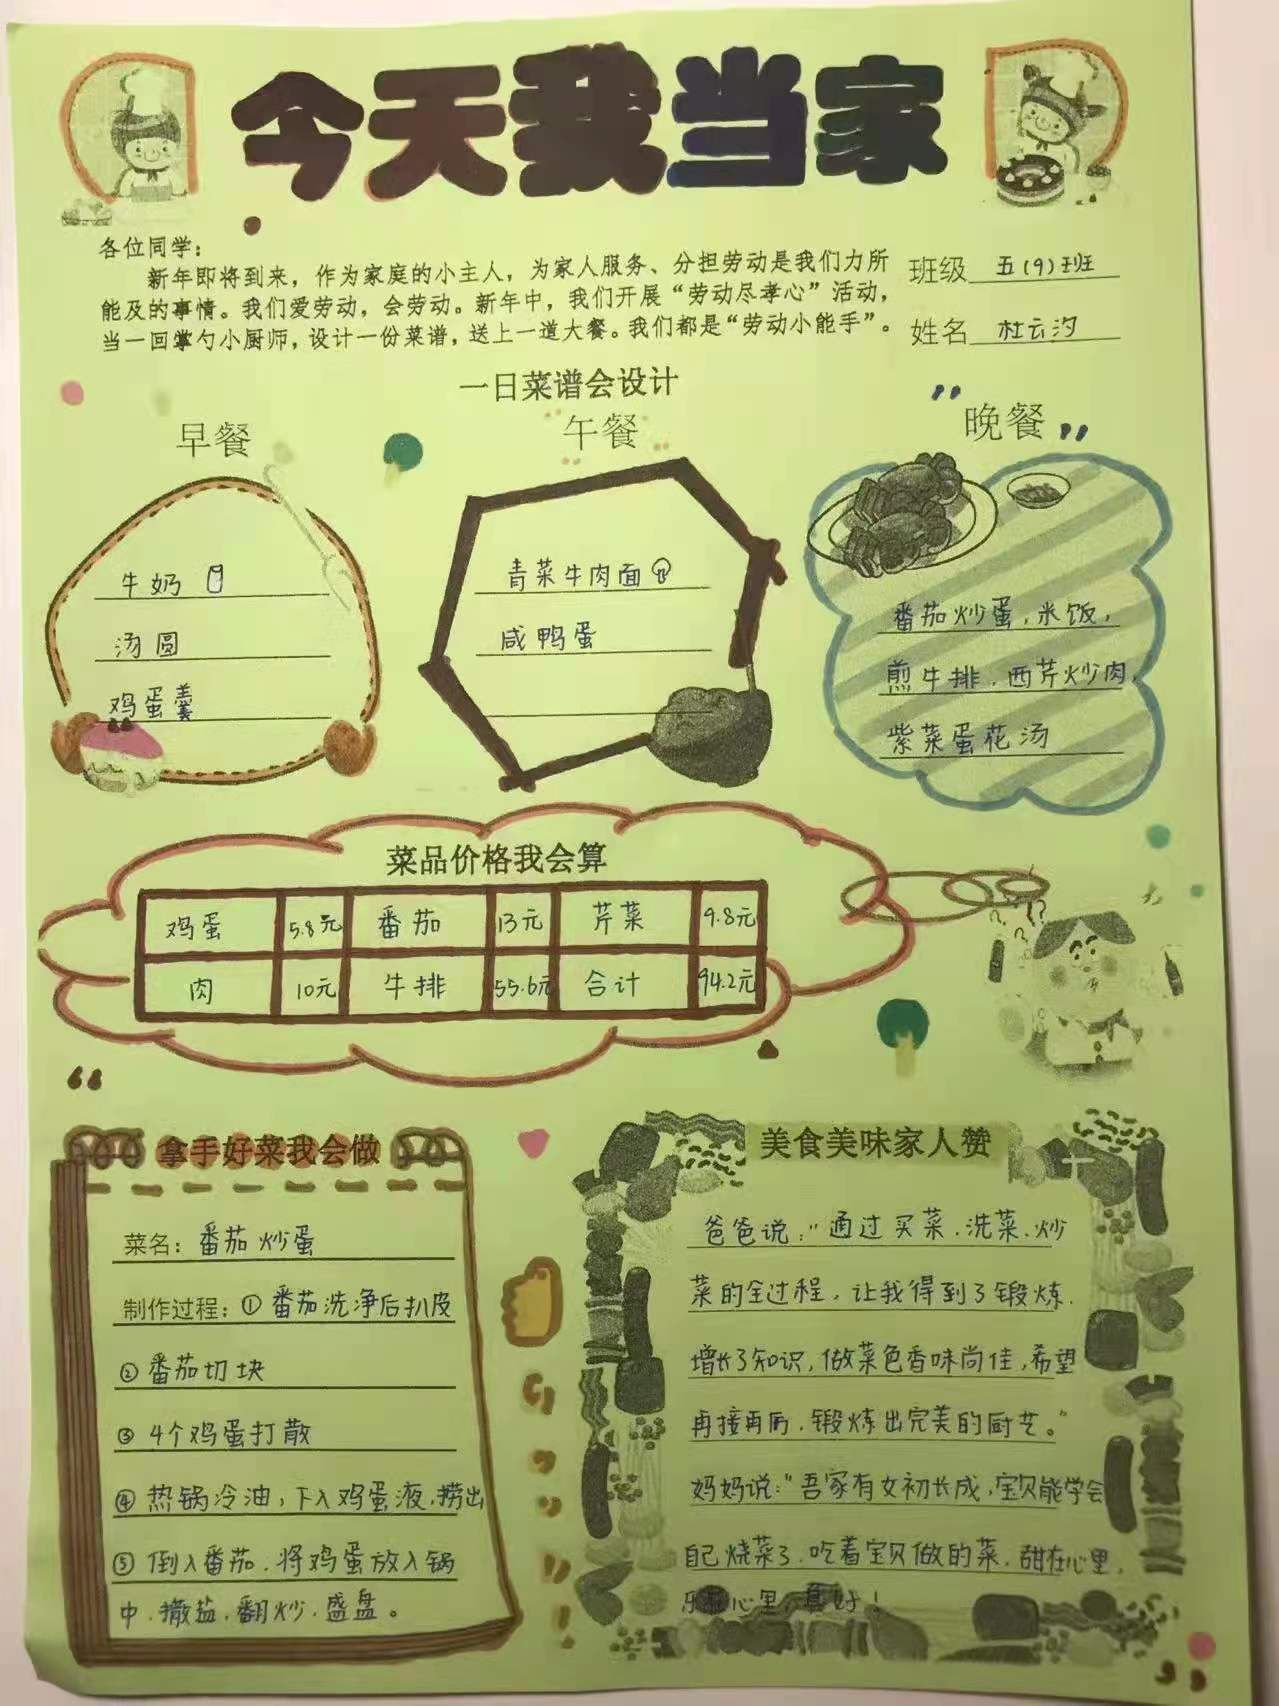 今天我当家
各位同学：
新年即将到来，作为家庭的小主人，为家人服务、分担劳动是我们力所
能及的事情。我们爱劳动，会劳动。新年中，我们开展“劳动尽孝心”活动，
当一回掌勺小厨师，设计一份菜谱，送上一道大餐。我们都是“劳动小能手”。
班级 五(9)班
姓名 杜云汐
一日菜谱会设计
早餐
牛奶
汤圆
鸡蛋羹
午餐
青菜牛肉面
咸鸭蛋
晚餐
番茄炒蛋，米饭，
煎牛排、西芹炒肉，
紫菜蛋花汤
菜品价格我会算
鸡蛋 5.8元 番茄 13元 芹菜 9.8元
肉 10元 牛排 55.6元 合计 94.2元
拿手好菜我会做
菜名：番茄炒蛋
制作过程：①番茄洗净后扒皮
②番茄切块
③4个鸡蛋打散
④热锅冷油，下入鸡蛋液，捞出
⑤倒入番茄，将鸡蛋放入锅
中，撒盐，翻炒，盛盘。
美食美味家人赞
爸爸说：“通过买菜、洗菜、炒
菜的全过程，让我得到了锻炼，
增长了知识，做菜色香味尚佳，希望
再接再厉，锻炼出完美的厨艺。”
妈妈说：“吾家有女初长成，宝贝能学会
自己烧菜了，吃着宝贝做的菜，甜在心里，
乐在心里，真好！